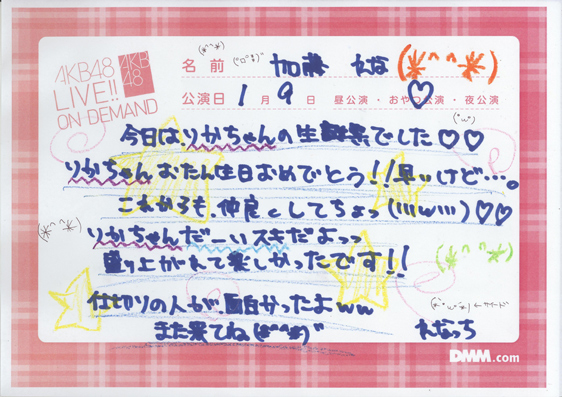 AKB48
LIVE!!
ON DEMAND
AKB
48
名前 加藤 れな (*^^*)
公演日 1月9日 昼公演・おやつ公演・夜公演
今日は、りかちゃんの生誕祭でした♡♡
りかちゃん おたん生日おめでとう!!早いけど…。
これからも、仲良としてちょっ(///w///)♡♡
りかちゃんだーいスキだよっっ
盛り上がれて楽しかったです!!
仕切りの人が、面白かったよww
また来てね(*^^*)"
れなっち
DMM.com